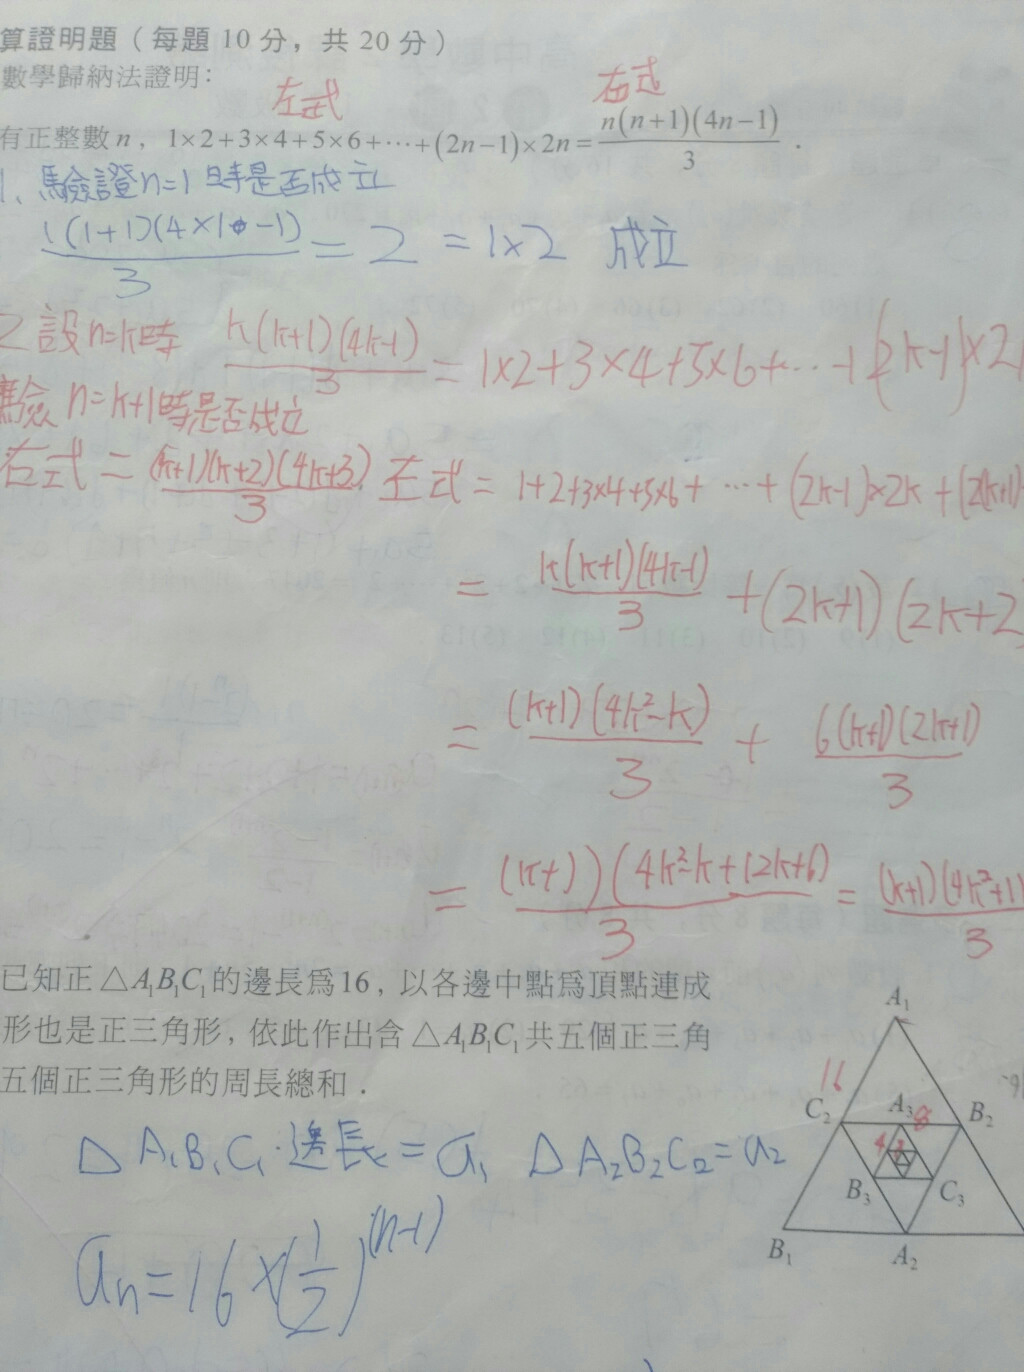 算證明題（每題10分，共20分）
數學歸納法證明：
左式 右式
有正整數n，1×2+3×4+5×6+⋯+(2n−1)×2n=n(n+1)(4n−1)/3．
1、驗證n=1時是否成立
1(1+1)(4×1-1)/3 = 2 = 1×2 成立
2設n=k時 k(k+1)(4k-1)/3 = 1×2+3×4+5×6+⋯+(2k-1)×2
驗n=k+1時是否成立
右式=(k+1)(k+2)(4k+3)/3 左式=1+2+3×4+5×6+⋯+(2k-1)×2k+(2(k+1)-
=k(k+1)(4k-1)/3+(2k+1)(2k+2
=(k+1)(4k²-k)/3+6(k+1)(2k+1)/3
=(k+1)(4k²-k+12k+6)/3=(k+1)(4k²+11/3
已知正△A₁B₁C₁的邊長為16，以各邊中點為頂點連成
形也是正三角形，依此作出含△A₁B₁C₁共五個正三角
五個正三角形的周長總和．
A₁
16
C₂ A₃ 8 B₂
4
B₃ C₃
B₁ A₂
△A₁B₁C₁邊長=a₁ △A₂B₂C₂=a₂
aₙ=16×(1/2)^(n-1)